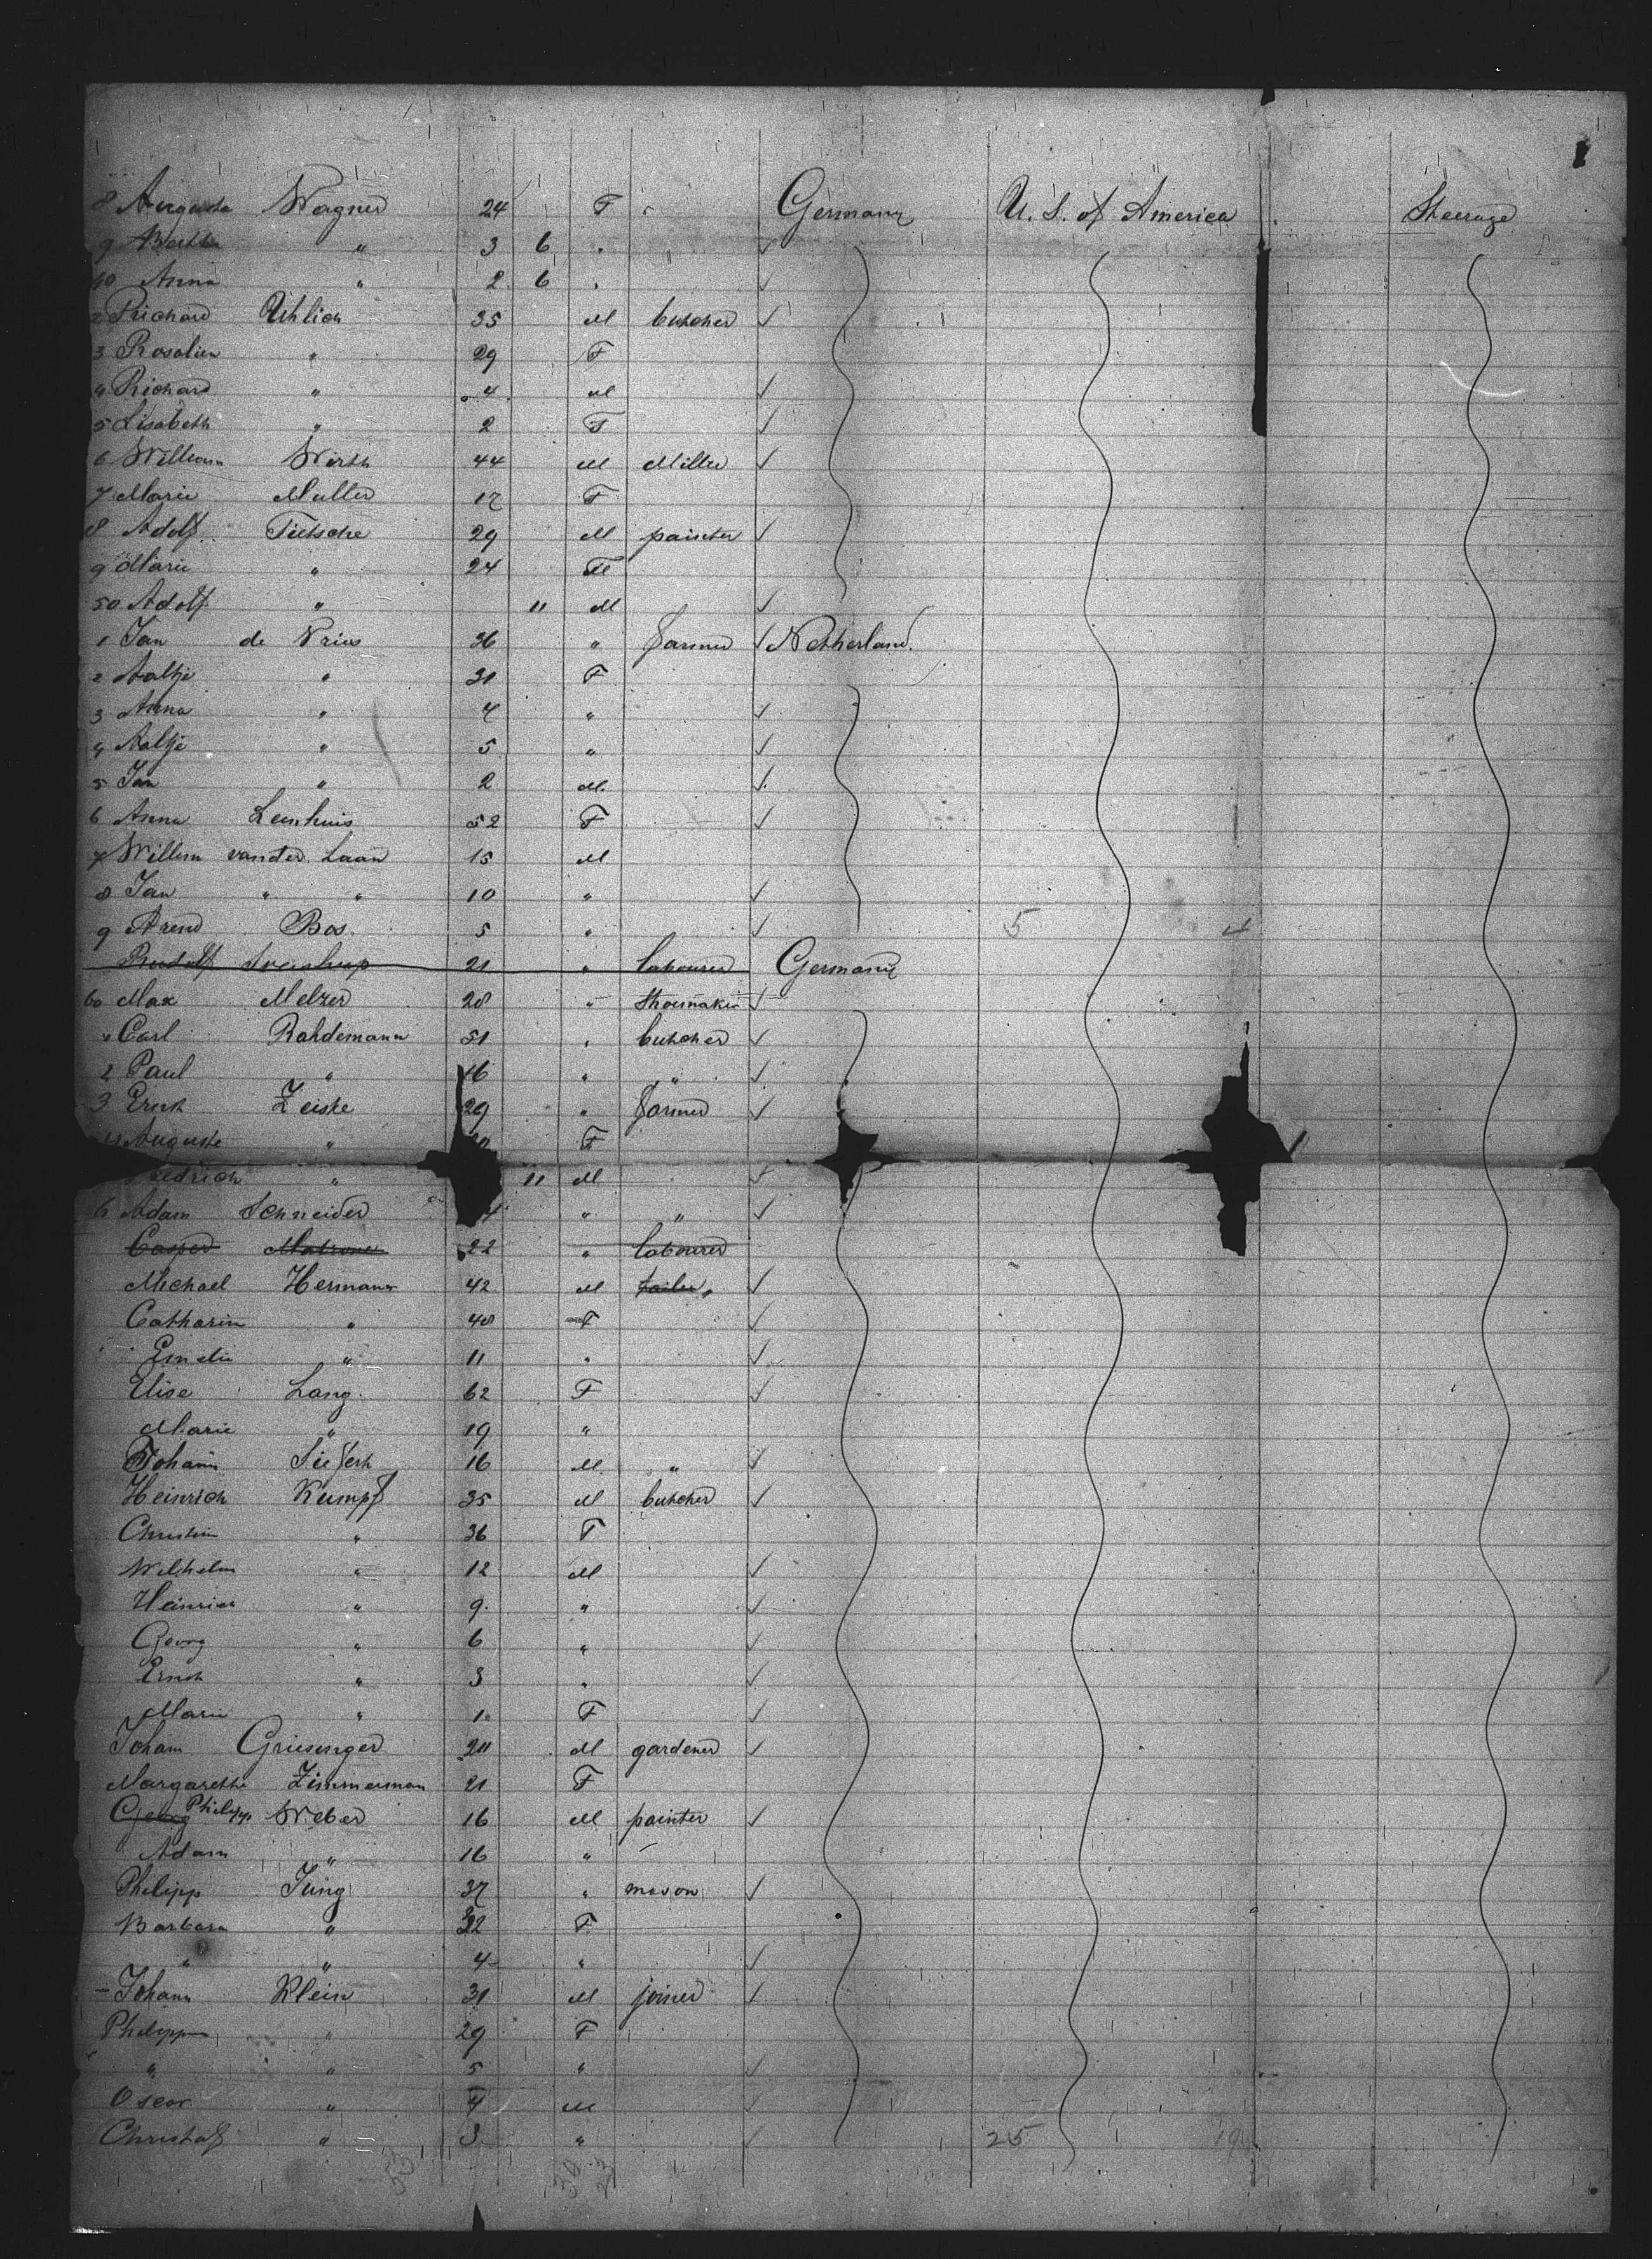 8 Auguste Wagner 24 F Germany U. S. of America Steerage
9 Bertha " 3 6 "
40 Anna " 2 6 "
2 Richard Uhlich 35 M butcher
3 Rosalien " 29 F
4 Richard " 4 M
5 Lisabeth " 2 F
6 William Wirth 44 M Miller
7 Marie Muller 17 F
8 Adolf Tietsche 29 M painter
9 Marie " 24 F
50 Adolf " 11 M
1 Jan de Vries 36 " farmer Netherland.
2 Aaltje " 31 F
3 Anna " 7 "
4 Aaltje " 5 "
5 Jan " 2 M.
6 Anna Leenhuis 52 F
7 Willem vander Laan 15 M
8 Jan " " 10 "
9 Arend Bos. 5 " 5 4
Rudolf 21 " labourer Germany
60 Max Melzer 28 " Shoemaker
" Carl Rohdemann 51 " butcher
2 Paul " 16 " "
3 Ernst Zeiske 29 " farmer
4 Auguste " F
" 11 M
6 Adam Schneider " "
Casper 22 " labourer
Michael Hermann 42 M tailor "
Catharin " 48 F
Emelie " 11 "
Elise Lang. 62 F
Marie " 19 "
Johann Siefert 16 M "
Heinrich Kumpf 35 M butcher
Christin " 36 F
Wilhelm " 12 M
Heinrich " 9. "
Georg " 6 "
Ernst " 3 "
Marie " 1 F
Joham Griesinger 24 M gardener
Margarethe Zimmerman 21 F
Georg Philipp Weber 16 M painter
Adam " 16 "
Philipp Jung 37 " mason
Barbara " 32 F
" " 4 "
Johann Klein 31 M joiner
Philippine " 29 F
" " 5 "
Oscar " 4 M
Christof " 3 " 25 19